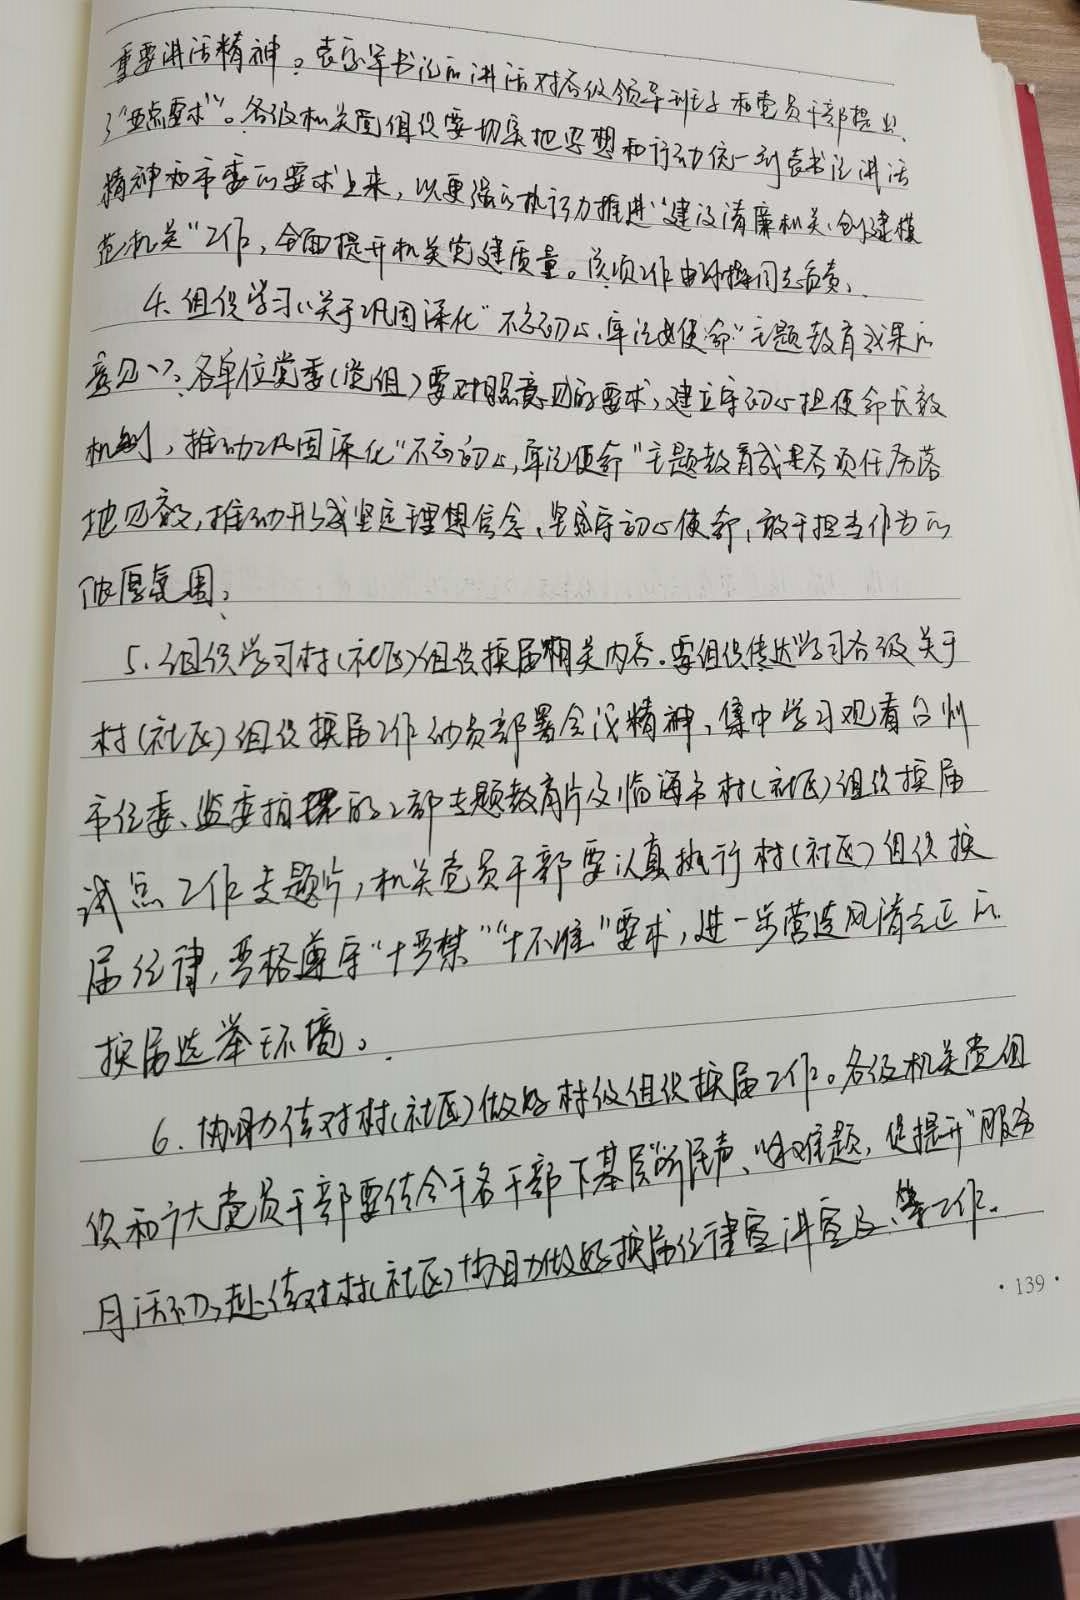 重要讲话精神。袁家军书记的讲话对各级领导班子和党员干部提出
了“五点要求”。各级机关党组织要切实把思想和行动统一到袁书记讲话
精神和市委的要求上来，以更强的执行力推进“建设清廉机关、创建模
范机关”工作，全面提升机关党建质量。该项工作由同志负责。
4. 组织学习《关于巩固深化“不忘初心、牢记使命”主题教育成果的
意见》。各单位党委（党组）要对照意见的要求，建立守初心担使命长效
机制，推动巩固深化“不忘初心，牢记使命”主题教育成果各项任务落
地见效，推动形成坚定理想信念、坚守初心使命，敢于担当作为的
浓厚氛围。
5. 组织学习村（社区）组织换届相关内容。要组织传达学习各级关于
村（社区）组织换届工作动员部署会议精神，集中学习观看台州
市纪委、监委拍摄的2部主题教育片及临海市村（社区）组织换届
试点工作专题片，机关党员干部要认真执行村（社区）组织换
届纪律，严格遵守“十严禁”“十不准”要求，进一步营造风清气正的
换届选举环境。
6. 协助结对村（社区）做好村级组织换届工作。各级机关党组
织和广大党员干部要结合千名干部下基层“听民声、解难题，促提升”服务
月活动，赴结对村（社区）协助做好换届纪律宣讲宣及等工作。
·139·